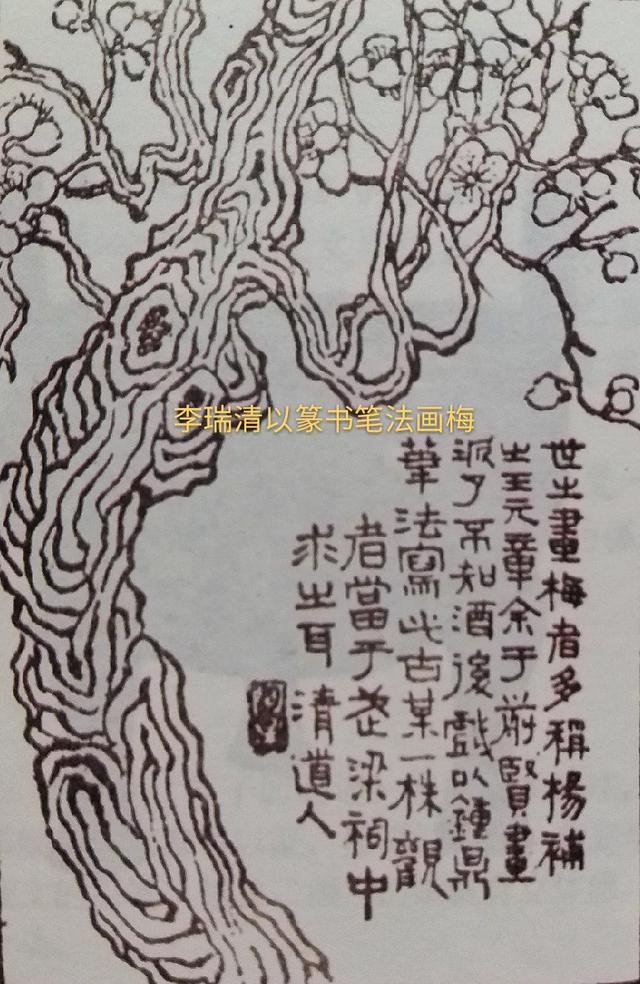 李瑞清以篆书笔法画梅
世之畫梅者多稱楊補
之王元章余于前賢畫
派了不知酒後戲以鐘鼎
筆法寫此古某一株觀
者當于武梁祠中
求之耳 清道人